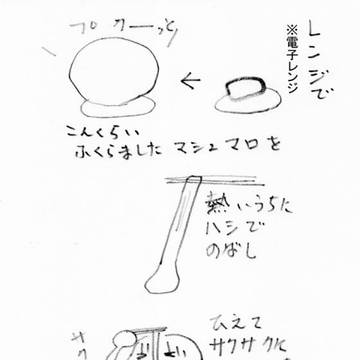 レンジで
※電子レンジ
プクーっと
こんくらい
ふくらましたマシュマロを
熱いうちに
ハシで
のばし
ひえて
サクサクに
サク